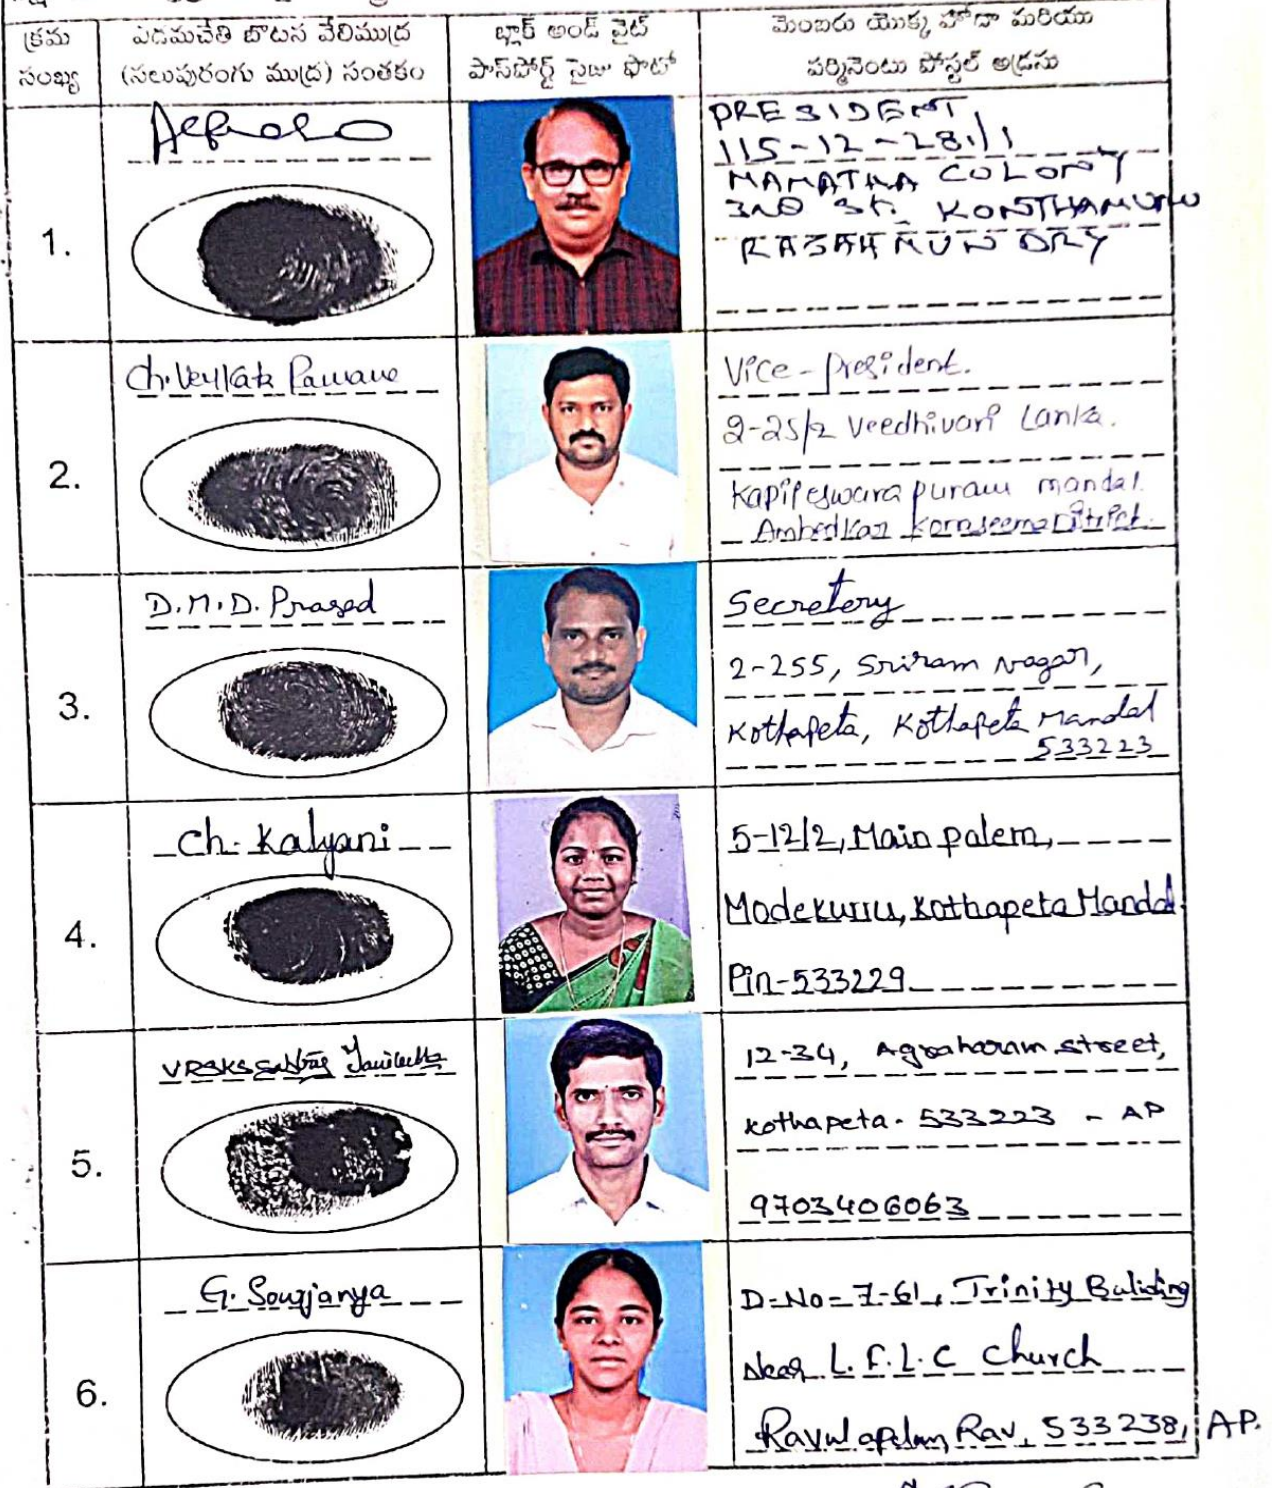 క్రమ సంఖ్య
ఎడమచేతి బొటన వేలిముద్ర
(నలుపురంగు ముద్ర) సంతకం
బ్లాక్ అండ్ వైట్
పాస్‌పోర్ట్ సైజు ఫొటో
మెంబరు యొక్క హోదా మరియు
పర్మినెంటు పోస్టల్ అడ్రసు
1.
PRESIDENT
115-12-28/1
MAMATHA COLONY
3RD St. KONTHAMURU
RAJAHMUNDRY
2.
Ch. Venkata Ramana
Vice-president.
2-25/2 Veedhivari Lanka.
Kapileswarapuram mandal.
Ambedkar Konaseema District.
3.
D.M.D. Prasad
Secretery
2-255, Sriram Nagar,
Kothapeta, Kothapeta Mandal
533223
4.
Ch. Kalyani
5-12/2, Main palem,
Modekurru, Kothapeta Mandal.
Pin-533229
5.
VRSKS
12-34, Agraharam street,
Kothapeta. 533223 - AP
9703406063
6.
G. Sowjanya
D-No-7-61, Trinity Buliding
Near L.F.L.C Church
Ravulapalem, Rav, 533238, AP.